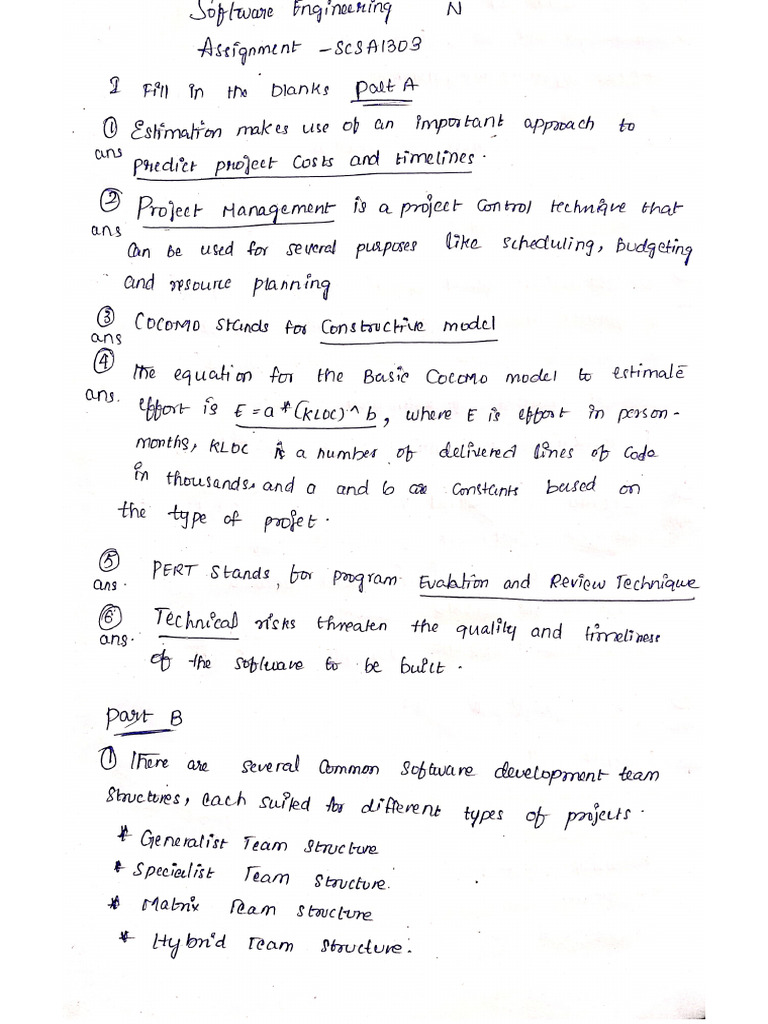 Software Engineering N
Assignment - SCSA1303
I Fill in the blanks Part A
① Estimation makes use of an important approach to
ans predict project costs and timelines.
② Project Management is a project control technique that
ans can be used for several purposes like scheduling, budgeting
and resource planning
③ COCOMO stands for Constructive model
ans
④ The equation for the Basic Cocomo model to estimate
ans. effort is E = a*(KLOC)^b, where E is effort in person-
months, KLOC is a number of delivered lines of code
in thousands, and a and b are constants based on
the type of projet.
⑤ PERT stands for program Evalation and Review Technique
ans.
⑥ Technical risks threaten the quality and timeliness
ans. of the software to be built.
Part B
① There are several common software development team
structures, each suited for different types of projects.
* Generalist Team structure
* Specialist Team structure.
* Matrix Team structure
* Hybrid Team structure.